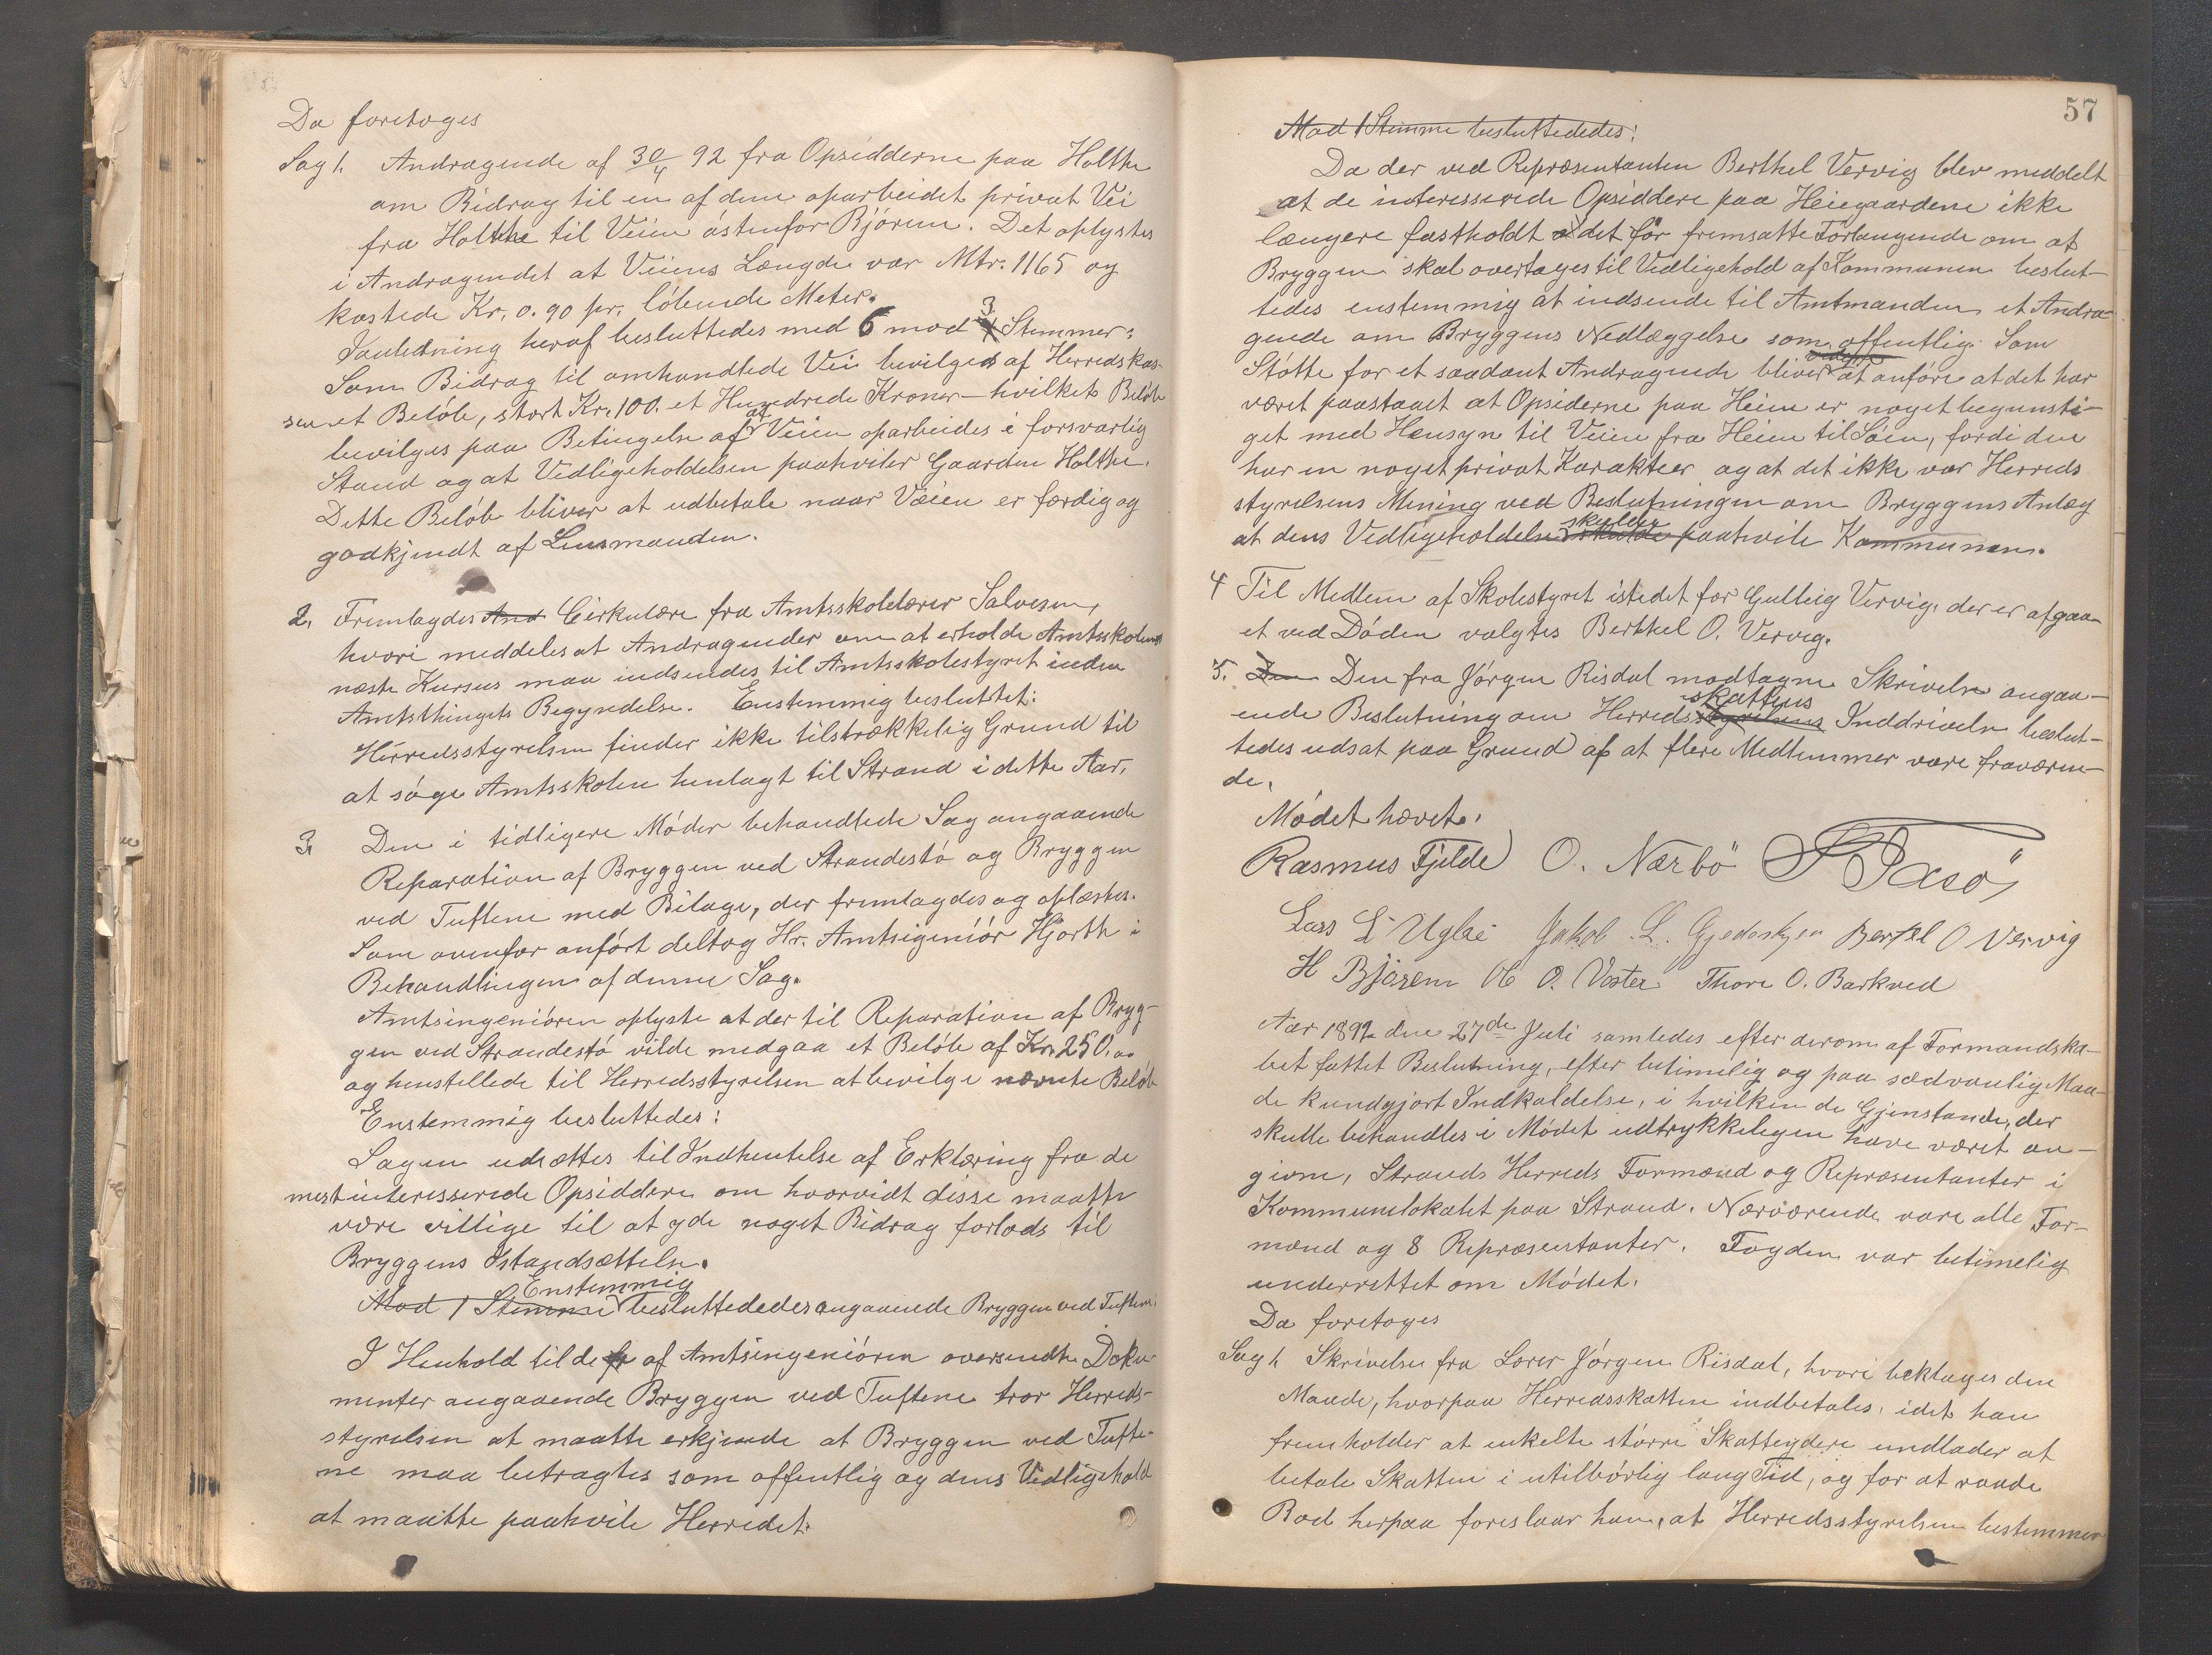 Da foretoges
Sag 1. Andragende af 30/4 92 fra Opsidderne paa Holthe
om Bidrag til en af dem oparbeidet privat Vei
fra Holthe til Veien østenfor Bjøren. Det oplystes
i Andragendet at Veiens Længde var Mtr. 1165 og
kostede Kr. 0.90 pr. løbende Meter.
Ianledning heraf besluttedes med 6 mod 3 Stemmer:
Som Bidrag til omhandlede Vei bevilges af Herredskas-
sen et Beløb, stort Kr. 100. et Hundrede Kroner – hvilket Beløb
bevilges paa Betingelse af at Veien oparbeides i forsvarlig
Stand og at Vedligeholdelsen paahviler Gaarden Holthe.
Dette Beløb bliver at udbetale naar Veien er færdig og
godkjendt af Lensmanden.
2. Fremlagdes And Cirkulære fra Amtsskolelærer Salvesen,
hvori meddeles at Andragender om at erholde Amtsskolens
næste Kursus maa indsendes til Amtsskolestyret inden
Amtsthingets Begyndelse. Enstemmig besluttet:
Herredsstyrelsen finder ikke tilstrækkelig Grund til
at søge Amtsskolen henlagt til Strand i dette Aar.
3. Den i tidligere Møder behandlede Sag angaaende
Reparation af Bryggen ved Strandestø og Bryggen
ved Tuftene med Bilage, der fremlagdes og oplæstes.
Som ovenfor anført deltog Hr. Amtsigeniør Hjorth i
Behandlingen af denne Sag.
Amtsingeniøren oplyste at der til Reparation af Bryg-
gen ved Strandestø vilde medgaa et Beløb af Kr. 250.00
og henstillede til Herredsstyrelsen at bevilge nævnte Beløb
Enstemmig besluttedes:
Sagen udsættes til Indhentelse af Erklæring fra de
mest interesserede Opsiddere om hvorvidt disse maatte
være villige til at yde noget Bidrag forlods til
Bryggens Istandsættelse.
Enstemmig
Mod 1 Stemme besluttededes angaaende Bryggen ved Tuftene:
I Henhold til de fr af Amtsingeniøren oversendte Doku-
menter angaaende Bryggen ved Tuftene tror Herreds-
styrelsen at maatte erkjende at Bryggen ved Tufte-
ne maa betragtes som offentlig og dens Vedligehold
at maatte paahvile Herredet.
57
Mod 1 Stemme besluttededes:
Da der ved Repræsentanten Berthel Vervig blev meddelt
at de interesserede Opsiddere paa Heiegaardene ikke
længere fastholdt det før fremsatte Forlangende om at
Bryggen skal overtages til Vedligehold af Kommunen beslut-
tedes enstemmig at indsende til Amtmanden et Andra-
gende om Bryggens Nedlæggelse som offentlig. Som
Støtte for et saadant Andragende bliver at anføre at det har
været paastaaet at Opsiderne paa Heien er noget begunsti-
get med Hensyn til Veien fra Heien til Søen, fordi den
har en noget privat Karakteer og at det ikke var Herreds
styrelsens Mening ved Beslutningen om Bryggens Anlæg
at dens Vedligeholdelse skulde skulde paahvile Kommunen.
4 Til Medlem af Skolestyret istedet for Gulleig Vervig, der er afgaa-
et ved Døden valgtes Berthel O. Vervig.
5. Den Den fra Jørgen Risdal modtagne Skrivelse angaa-
skattens
ende Beslutning om Herredsstyrelsens Inddrivelse beslut-
tedes udsat paa Grund af at flere Medlemmer vare fraværen-
de.
Mødet hævet.
Rasmus Fjelde O. Nærbö Taxsö
Lars L Ugbei Jakob L. Bertel O Vervig
H Bjøren O. Voster Thore O. Barkved
Aar 1892 den 27de Juli samledes efter derom af Formandska-
bet fattet Beslutning, efter betimelig og paa sædvanlig Maa-
de kundgjort Indkaldelse, i hvilken de Gjenstande, der
skulle behandles i Mødet udtrykkeligen have været an-
givne, Strands Herreds Formænd og Repræsentanter i
Kommunelokalet paa Strand. Nærværende vare alle For-
mænd og 8 Repræsentanter. Fogden var betimelig
underrettet om Mødet.
Da foretoges
Sag 1 Skrivelse fra Lærer Jørgen Riisdal, hvori beklages den
Maade, hvorpaa Herredsskatten indbetales, idet han
fremholder at enkelte større Skatteydere undlader at
betale Skatten i utilbørlig lang Tid, og for at raade
Bod herpaa foreslaar han, at Herredsstyrelsen bestemmer